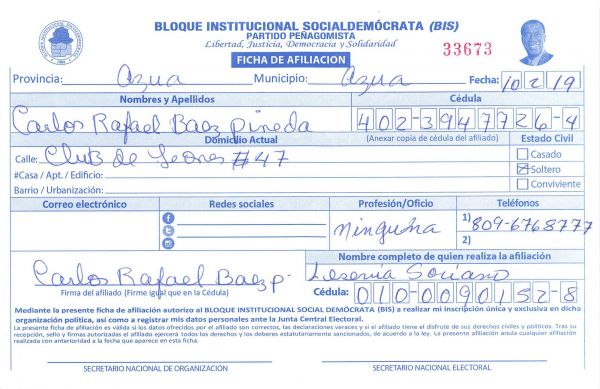 BLOQUE INSTITUCIONAL SOCIALDEMÓCRATA (BIS)
PARTIDO PEÑAGOMISTA
Libertad, Justicia, Democracia y Solidaridad
FICHA DE AFILIACION
33673
Provincia: Azua Municipio: Azua Fecha: 10 2 19
Nombres y Apellidos Cédula
Carlos Rafael Baez Pineda 402-3947726-4
Domicilio Actual (Anexar copia de cédula del afiliado) Estado Civil
Calle: Club de Leones #47
Casado
#Casa / Apt. / Edificio: Soltero
Barrio / Urbanización: Conviviente
Correo electrónico Redes sociales Profesión/Oficio Teléfonos
Ninguna 1) 809-6768777
2)
Nombre completo de quien realiza la afiliación
Carlos Rafael Baez p. Soriano
Firma del afiliado (Firme igual que en la Cédula) Cédula: 010-0090152-8
Mediante la presente ficha de afiliación autorizo al BLOQUE INSTITUCIONAL SOCIAL DEMÓCRATA (BIS) a realizar mi inscripción única y exclusiva en dicha
organización política, así como a registrar mis datos personales ante la Junta Central Electoral.
La presente ficha de afiliación es válida si los datos ofrecidos por el afiliado son correctos, las declaraciones veraces y si el titular es el disfrute de sus derechos civiles y políticos. Tras su
recepción, sello y firmas autorizadas el afiliado ejercerá todos los derechos y los deberes estatutariamente sancionados, de acuerdo a la ley. La presente afiliación anula cualquier afiliación
realizada con anterioridad a la fecha que aparece en esta ficha.
SECRETARIO NACIONAL DE ORGANIZACIÓN SECRETARIO NACIONAL ELECTORAL